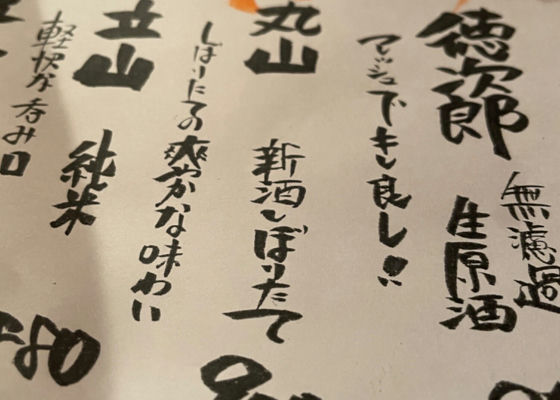 徳次郎
無濾過
生原酒
フレッシュでキレ良し!!
丸山
新酒しぼりたて
しぼりたての爽やかな味わい
立山
純米
軽快な呑み口